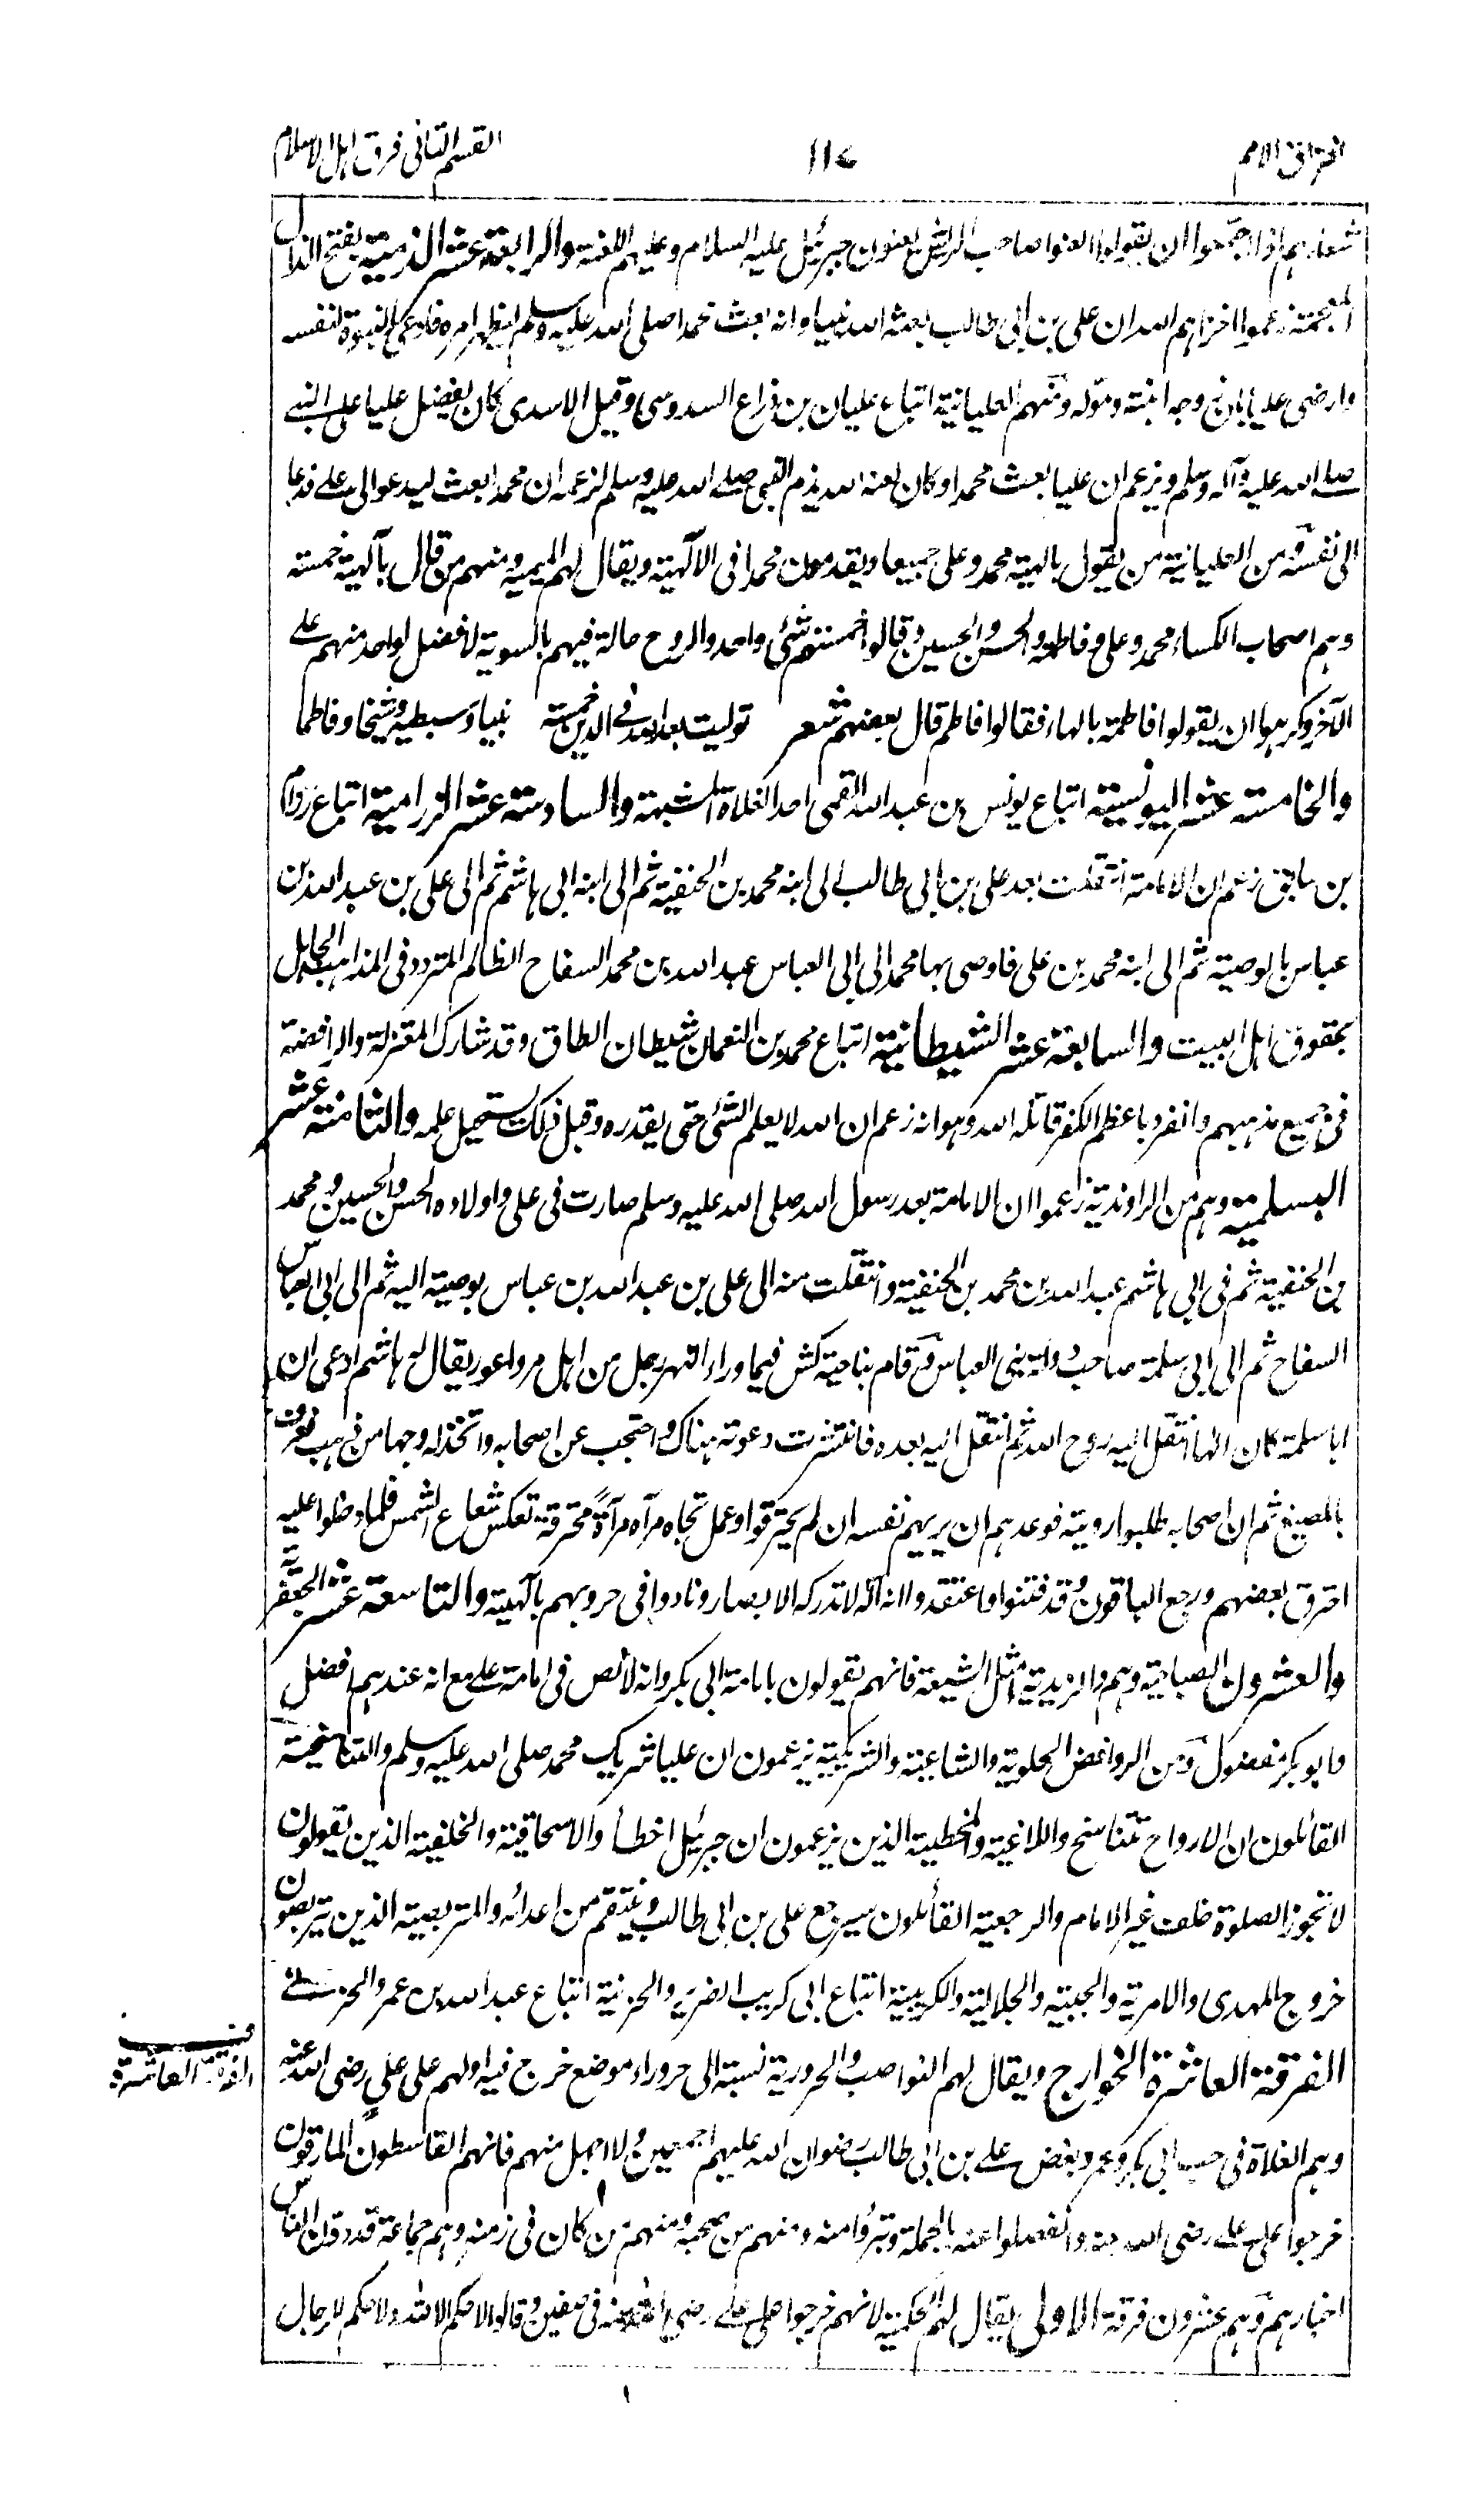 افتراق الامم
١١٧
القسم الثانى فرق اهل الاسلام
شعارهم اذا اجتمعوا ان يقولوا العنوا صاحب الريش يعنون جبرئيل عليه السلام وعليهم اللعنة والرابعة عشر الذمية بفتح الذال
المعجمة زعموا اخزاهم الله ان على بن ابى طالب بعثه الله نبيا وانه بعث محمدا صلى الله عليه وسلم ليظهر امره فادعى النبوة لنفسه
وارضى عليا بان زوجه ابنته وموله ومنهم العليانية اتباع عليان بن ذراع السدوسى وقيل الاسدى كان يفضل عليا على النبى
صلى الله عليه وآله وسلم ويزعم ان عليا بعث محمدا وكان لعنه الله يذم النبى صلى الله عليه وسلم لزعمه ان محمدا بعث ليدعو الى على فدعا
الى نفسه ومن العليانية من يقول بالهية محمد وعلى جميعا ويقدمون محمدا فى الآلهية ويقال لهم الميمية ومنهم من قال بآلهية خمسة
وهم اصحاب الكساء محمد وعلى وفاطمة والحسن والحسين وقالوا خمستهم شئ واحد والروح حالة فيهم بالسوية لا فضل لواحد منهم على
الآخر وكرهوا ان يقولوا فاطمة بالهاء فقالوا فاطم قال بعضهم شعر توليت بعد الله فى الدين خمسة نبيا وسبطيه وشيخا وفاطما
والخامسة عشر اليونسية اتباع يونس بن عبد الله القمى احد الغلاة المشبهة والسادسة عشر الرزامية اتباع رزام
بن سابق زعم ان الامامة انتقلت بعد على بن ابى طالب الى ابنه محمد بن الحنفية ثم الى ابنه ابى هاشم ثم الى على بن عبد الله بن
عباس بالوصية ثم الى ابنه محمد بن على فاوصى بها محمد الى ابى العباس عبد الله بن محمد السفاح الظالم المتردد فى المذاهب الجاهل
بحقوق اهل البيت والسابعة عشر الشيطانية اتباع محمد بن النعمان شيطان الطاق وقد شارك المعتزلة والرافضة
فى جميع مذهبهم وانفرد باعظم الكفر قاتله الله وهو انه زعم ان الله لا يعلم الشئ حتى يقدره وقبل ذلك يستحيل علمه والثامنة عشر
البسلمية وهم من الراوندية زعموا ان الامامة بعد رسول الله صلى الله عليه وسلم صارت فى على واولاده الحسن والحسين ومحمد
بن الحنفية ثم فى ابى هاشم عبد الله بن محمد بن الحنفية وانتقلت منه الى على بن عبد الله بن عباس بوصية اليه ثم الى ابى العباس
السفاح ثم الى ابى سلمة صاحب دولة بنى العباس وقام بناحية كش فيما وراء النهر رجل من اهل مرو اعور يقال له هاشم ادعى ان
ابا سلمة كان الها انتقل اليه روح الله ثم انتقل اليه بعده فانتشرت دعوته هناك واحتجب عن اصحابه واتخذ له وجها من ذهب فعرف
بالمصيغ ثم ان اصحابه طلبوا رويته فوعدهم ان يريهم نفسه ان لم يحترقوا وعمل تجاه مرآه مرآةً محرقة تعكس شعاع الشمس فلما دخلوا عليه
احترق بعضهم ورجع الباقون وقد فتنوا واعتقدوا انه آله لا تدركه الابصار ونادوا فى حروبهم بآلهيته والتاسعة عشر الجعفرية
والعشرون الصباحية وهم والزيدية امثل الشيعة فانهم يقولون بامامة ابى بكر وانه لا نص فى امامة على مع انه عندهم افضل
وابو بكر مفضول ومن الروافض الحلوية والشاعية والشريكية يزعمون ان عليا شريك محمد صلى الله عليه وسلم والتناسخية
القائلون ان الارواح تتناسخ واللاغية والمخطية الذين يزعمون ان جبرئيل اخطأ والاسحاقية والخلفية الذين يقولون
لا تجوز الصلوة خلف غير الامام والرجعية القائلون سيرجع على بن ابى طالب وينتقم من اعدائه والمتربصية الذين يتربصون
خروج المهدى والآمرية والجبية والجلالية والكريبية اتباع ابى كريب الضرير والحزنية اتباع عبد الله بن عمر والحزنى
الفرقة العاشرة الخوارج ويقال لهم النواصب والحرورية نسبة الى حروراء موضع خرج فيه اولهم على على رضى الله عنه
وهم الغلاة فى حب ابى بكر وعمر وبغض على بن ابى طالب رضوان الله عليهم اجمعين ولا اجهل منهم فانهم القاسطون المارقون
خرجوا على على رضى الله عنه وانفصلوا عنه بالجملة وتبرؤا منه ومنهم من صحبه ومنهم من كان فى زمنه وهم جماعة قد دون الناس
اخبارهم وهم عشرون فرقة الاولى يقال لهم المحكمية لانهم خرجوا على على رضى الله عنه فى صفين وقالوا لا حكم الا لله ولا حكم للرجال
الفرقة العاشرة